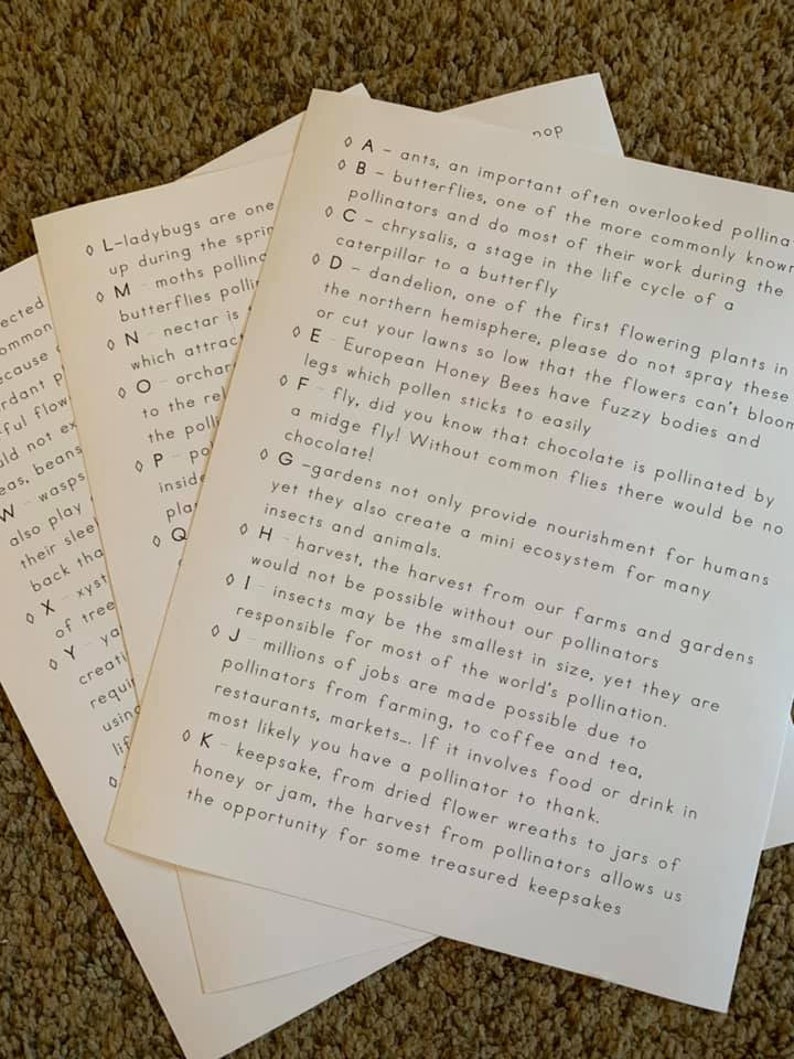 nop
◊ A - ants, an important often overlooked pollina
◊ B - butterflies, one of the more commonly known
pollinators and do most of their work during the
◊ C - chrysalis, a stage in the life cycle of a
caterpillar to a butterfly
◊ D - dandelion, one of the first flowering plants in
the northern hemisphere, please do not spray these
or cut your lawns so low that the flowers can't bloom
◊ E - European Honey Bees have fuzzy bodies and
legs which pollen sticks to easily
◊ F - fly, did you know that chocolate is pollinated by
a midge fly! Without common flies there would be no
chocolate!
◊ G -gardens not only provide nourishment for humans
yet they also create a mini ecosystem for many
insects and animals.
◊ H - harvest, the harvest from our farms and gardens
would not be possible without our pollinators
◊ I - insects may be the smallest in size, yet they are
responsible for most of the world's pollination.
◊ J - millions of jobs are made possible due to
pollinators from farming, to coffee and tea,
restaurants, markets... If it involves food or drink in
most likely you have a pollinator to thank.
◊ K - keepsake, from dried flower wreaths to jars of
honey or jam, the harvest from pollinators allows us
the opportunity for some treasured keepsakes
◊ L-ladybugs are one
up during the sprin
◊ M - moths pollina
butterflies polli
◊ N - nectar is
which attrac
◊ O - orchar
to the rel
the polli
◊ P - po
inside
pla
◊ Q
ected
ommon
ecause
rdant p
ful flow
uld not ex
eas, beans
W - wasps
also play
their slee
back tha
◊ X - xyst
of tree
◊ Y - ya
creati
requir
using
lif
◊